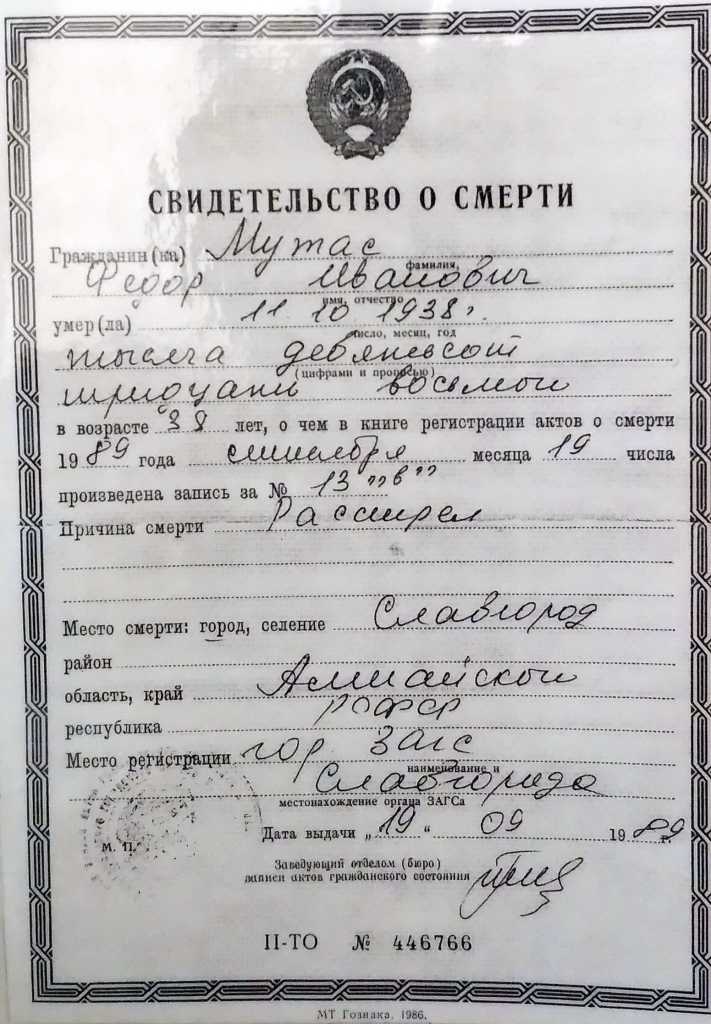 СВИДЕТЕЛЬСТВО О СМЕРТИ
Гражданин(ка) Мутас
фамилия,
Федор Иванович
имя, отчество
умер(ла) 11 10 1938г.
число, месяц, год
тысяча девятьсот
(цифрами и прописью)
тридцать восьмой
в возрасте 38 лет, о чем в книге регистрации актов о смерти
1989 года сентября месяца 19 числа
произведена запись за № 13 „в"
Причина смерти Расстрел
Место смерти: город, селение Славгород
район
область, край Алтайский
республика РСФСР
Место регистрации гор ЗАГС
наименование и
Славгорода
местонахождение органа ЗАГСа
Дата выдачи „19" 09 1989 г.
М. П.
Заведующий отделом (бюро)
записи актов гражданского состояния
II-ТО № 446766
МТ Гознака. 1986.